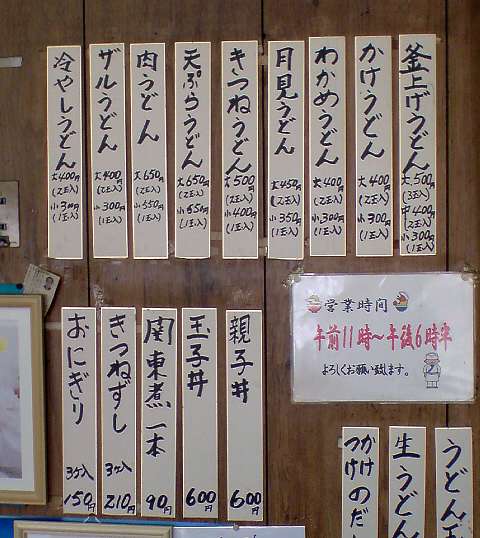 釜上げうどん
大500円
(3玉入)
中400円
(2玉入)
小300円
(1玉入)
かけうどん
大400円
(2玉入)
小300円
(1玉入)
わかめうどん
大400円
(2玉入)
小300円
(1玉入)
月見うどん
大450円
(2玉入)
小350円
(1玉入)
きつねうどん
大500円
(2玉入)
小400円
(1玉入)
天ぷらうどん
大650円
(2玉入)
小550円
(1玉入)
肉うどん
大650円
(2玉入)
小550円
(1玉入)
ザルうどん
大400円
(2玉入)
小300円
(1玉入)
冷やしうどん
大400円
(2玉入)
小300円
(1玉入)
営業時間
午前11時～午後6時半
よろしくお願い致します。
親子丼
600円
玉子丼
600円
関東煮一本
90円
きつねずし
3ヶ入
210円
おにぎり
3ヶ入
150円
うどん玉
生うどん
かけのだし
つけ